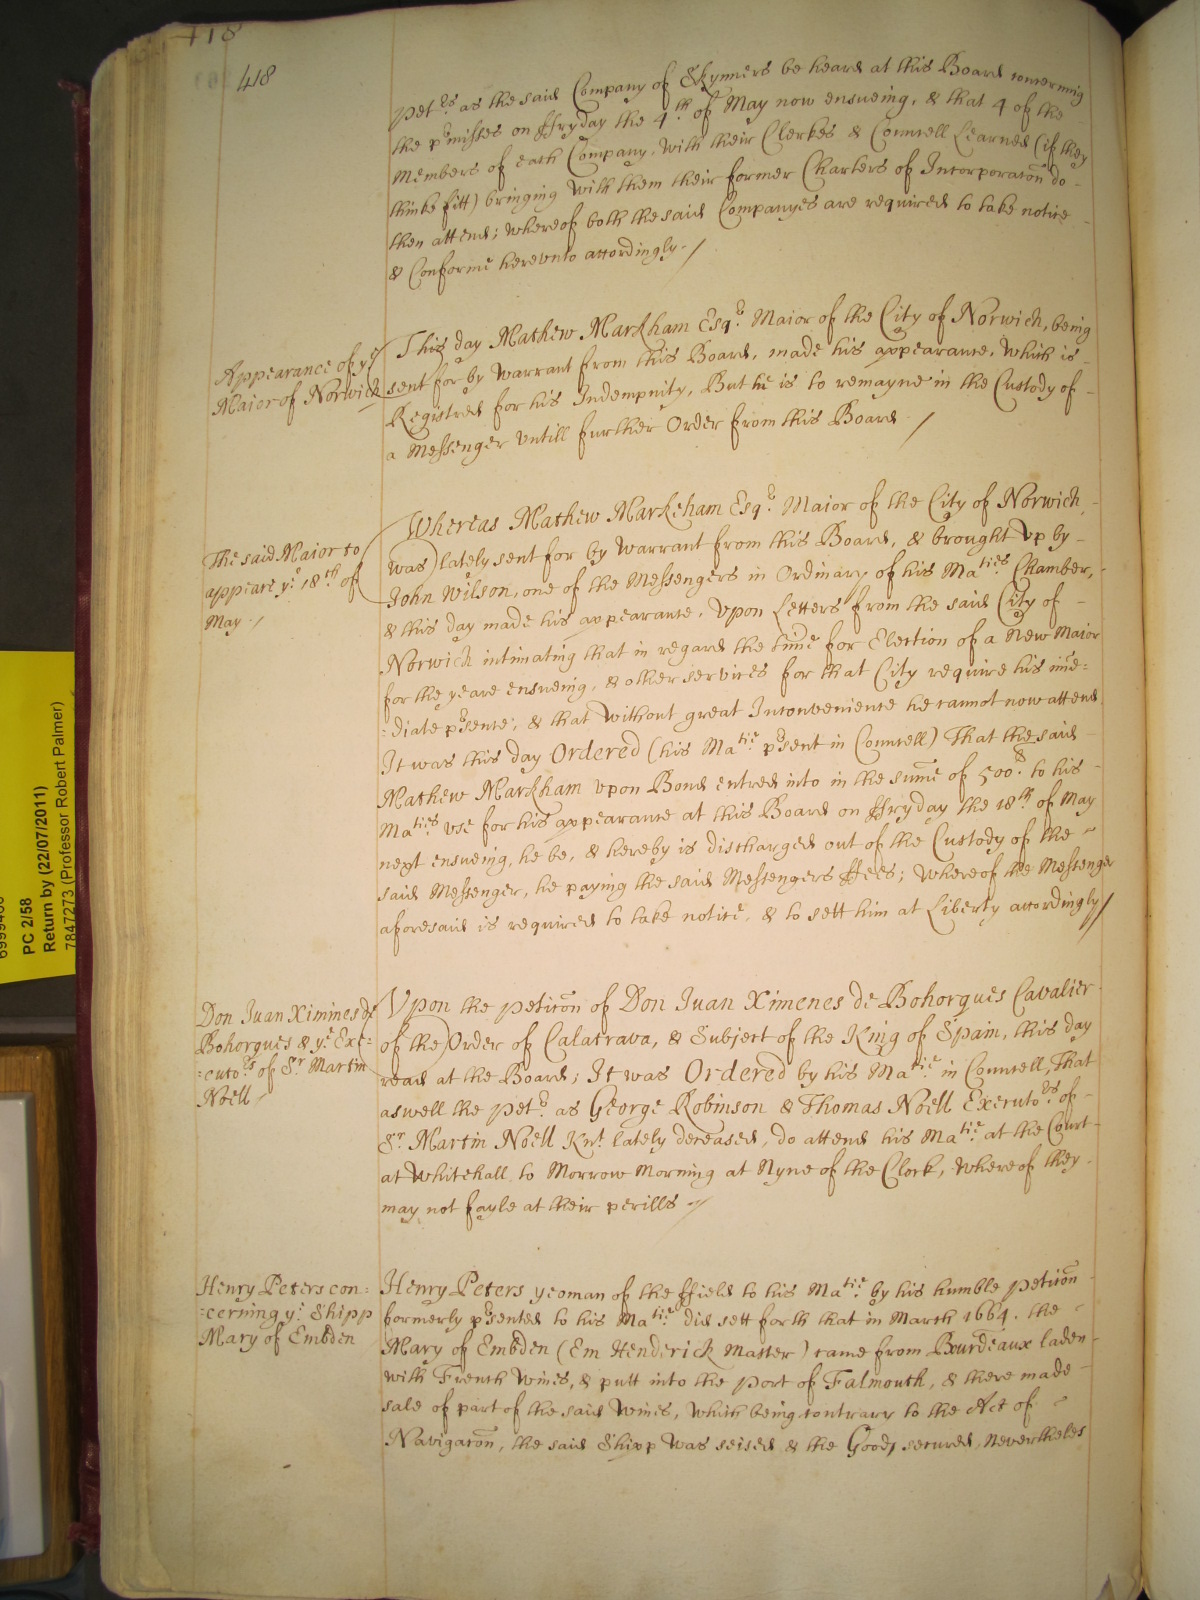 418
418
Petrs as the said Company of Skynners be heard at this Board concerning
the p̃misses on ffryday the 4th of May now ensueing, & that 4 of the
Members of each Company, with their Clerkes & Councell Learned (if they
thinke fitt) bringing with them their former Charters of Incorporac̃on do
then attend; whereof both the said Companyes are required to take notice
& Conforme herevnto accordingly./
Appearance of ye
Maior of Norwich
This day Mathew Markham Esqr. Maior of the City of Norwich, being
sent for by warrant from this Board, made his appearance, which is
Registred for his Indempnity, But he is to remayne in the Custody of
a Messenger vntill further Order from this Board /
The said Maior to
appeare ye 18th of
May ./
Whereas Mathew Markeham Esqr. Maior of the City of Norwich,
was lately sent for by warrant from this Board, & brought vp by
John Wilson, one of the Messengers in Ordinary of his Maties Chamber,
& this day made his appearance, Vpon Letters from the said City of
Norwich intimating that in regard the time for Election of a New Maior
for the yeare ensueing, & other services for that City require his im̃e=
=diate p̃sence; & that without great Inconvenience he cannot now attend
It was this day Ordered (his Matie p̃sent in Councell) That the said
Mathew Markham vpon Bond entred into in the sum̃e of 500l. to his
Maties vse for his appearance at this Board on ffryday the 18th of May
next ensueing, he be, & hereby is discharged out of the Custody of the
said Messenger, he paying the said Messengers ffees; whereof the Messenger
aforesaid is required to take notice, & to sett him at Liberty accordingly//
Don Juan Ximines de
Bohorques & ye Exe=
=cutors of Sr Martin
Noell
Vpon the petic̃on of Don Juan Ximenes de Bohorques Cavalier
of the Order of Calatrava, & Subject of the King of Spain, this day
read at the Board; It was Ordered by his Matie in Councell, That
aswell the petr. as George Robinson & Thomas Noell Executors of
Sr. Martin Noell Knt. lately deceased, do attend his Matie. at the Court
at Whitehall to Morrow Morning at Nyne of the Clock, whereof they
may not fayle at their perills ./
Henry Peters con=
=cerning ye Shipp
Mary of Embden
Henry Peters yeoman of the ffield to his Matie. by his humble petic̃on
formerly p̃sented to his Matie. did sett forth that in March 1664. the
Mary of Embden (Em Henderick Master) came from Bourdeaux laden
with French wines, & putt into the port of Falmouth, & there made
sale of part of the said wines, which being contrary to the Act of
Navigac̃on, the said Shipp was seised & the Goods secured, Neverthelesse
PC 2/58
Return by (22/07/2011)
7847273 (Professor Robert Palmer)